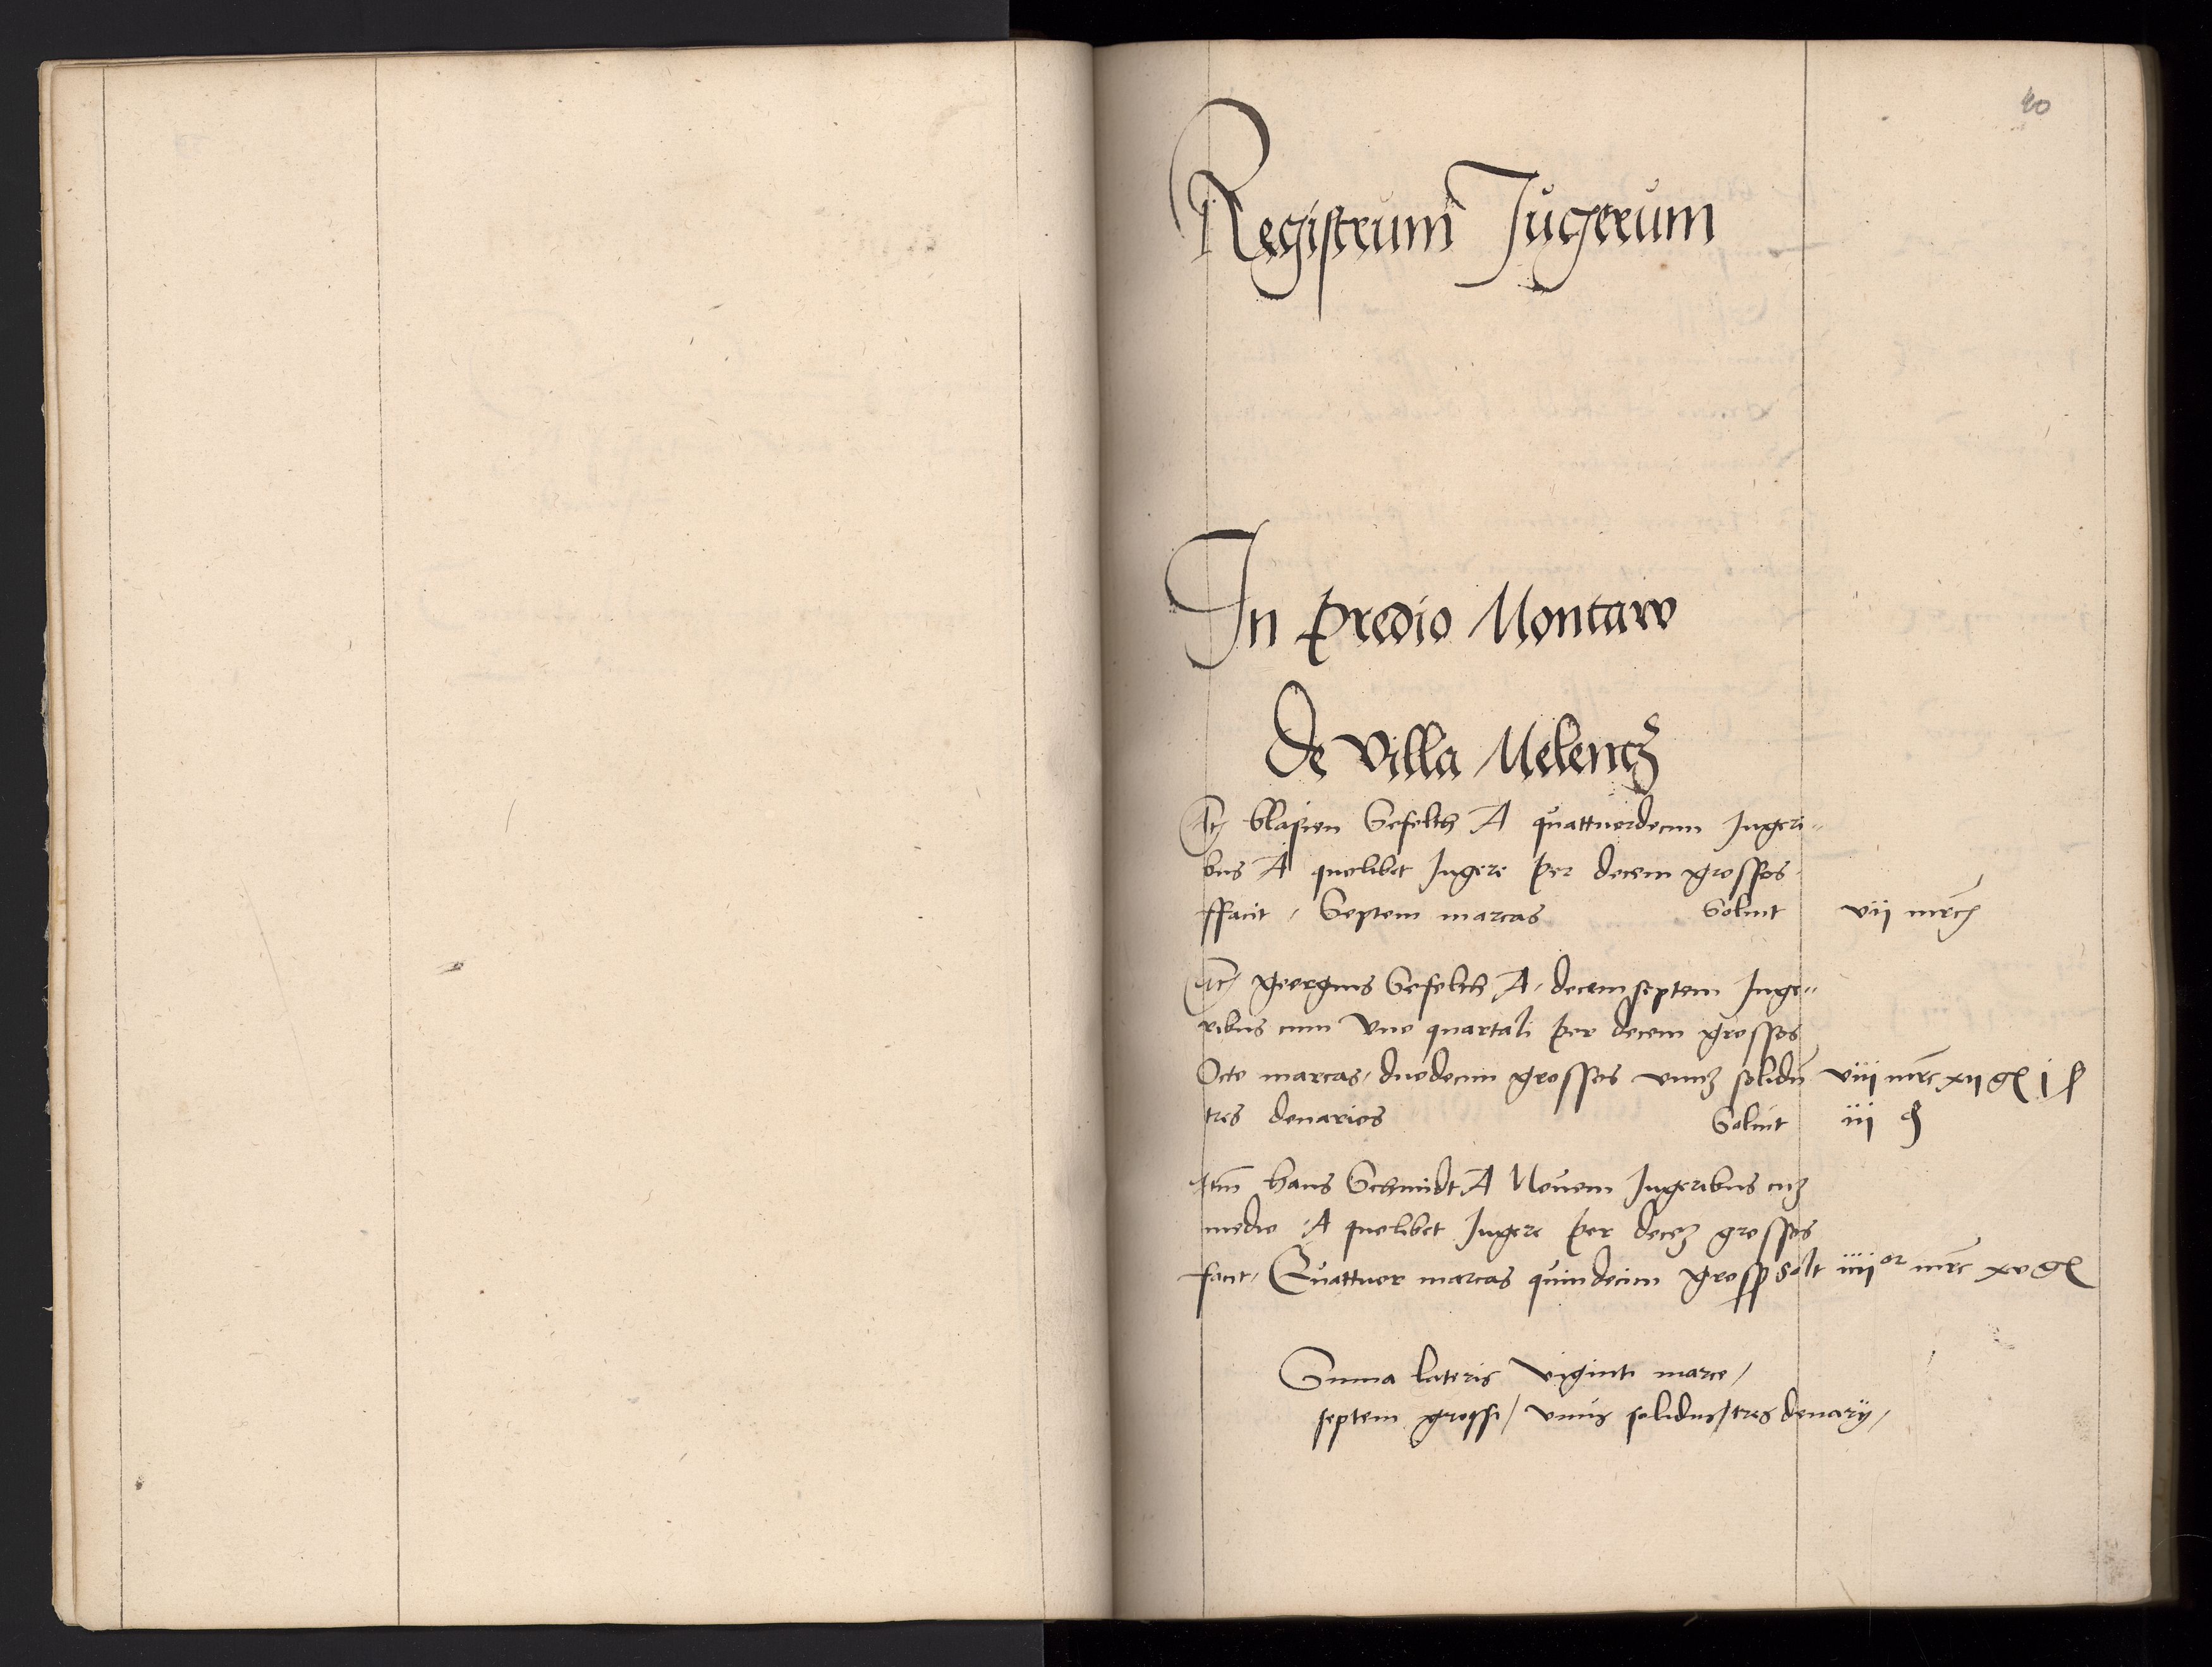 40
Registrum Jugerum
In predio Montaw
De villa Melencz
It blasien Sefeltcz A quattuordecim Jugeri-
bus A quolibet Jugere per decem grossos
ffacit / Septem marcas Soluit vij mrc
It georgius Sefeltcz A decemseptem Juge-
ribus cum vno quartali per decem grossos
Octo marcas / duodecim grossos vnuz solidu viij mrc xij g j s
tres denarios Soluit iij d
Itm hans Schmidt A Nouem Jugeribus cuz
medio A quolibet Jugere per decez grossos
facit / Quattuor marcas quindecim gross solt iiij or mrc xv g
Suma lateris viginti marce /
septem grossi / vnus solidus / tres denarij /